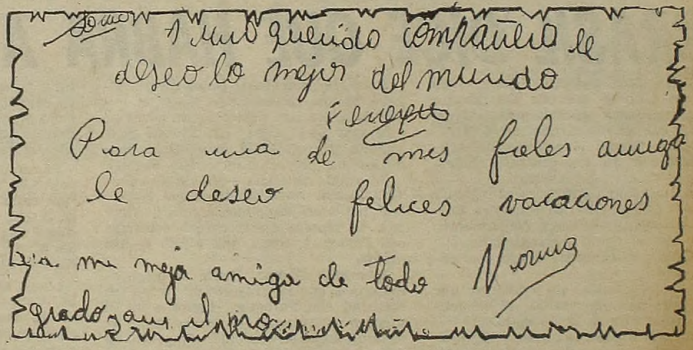 1 mui querido compañera le
deseo lo mejor del mundo
Para una de mis fieles amiga
le deseo felices vacaciones
Norma
mi mejor amiga de todo
grado